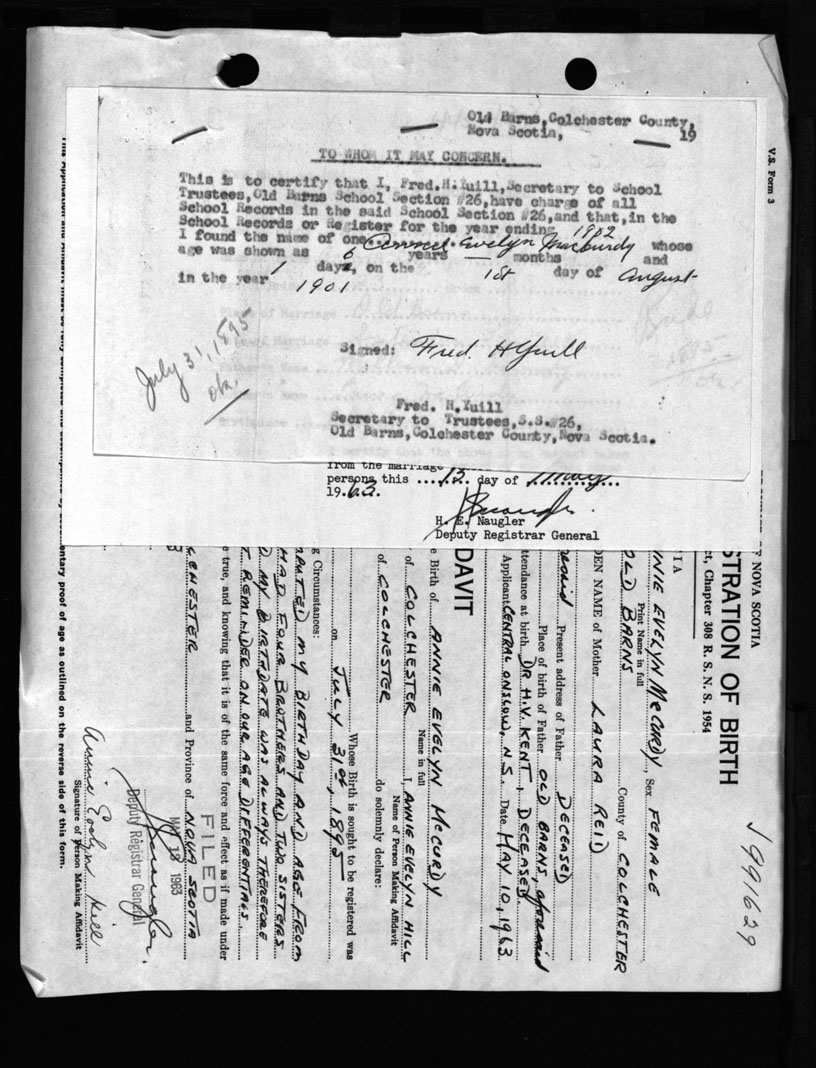 Old Barns,Colchester County,
Nova Scotia, 19
TO WHOM IT MAY CONCERN.
This is to certify that I, Fred.H.Yuill,Secretary to School
Trustees,Old Barns School Section #26,have charge of all
School Records in the said School Section #26,and that,in the
School Records or Register for the year ending 1902
I found the name of one Evelyn whose
age was shown as 6 years — months and
1 days, on the 1st day of August
in the year 1901
July 31, 1895
ok
Signed: Fred. H Yuill
Fred. H.Yuill
Secretary to Trustees,S.S.#26,
Old Barns,Colchester County,Nova Scotia.
from the marriage
persons this ....13.. day of ..May....
19.63.
H. E. Naugler
Deputy Registrar General
V.S. Form 3
OF NOVA SCOTIA
ct, Chapter 308 R. S. N. S. 1954
STRATION OF BIRTH
J991629
NNIE EVELYN McCURDY, Sex FEMALE
Print Name in full
OLD BARNS County of COLCHESTER
DEN NAME of Mother LAURA REID
Present address of Father DECEASED
Place of birth of Father OLD BARNS, aforesaid
ttendance at birth DR H.V. KENT, DECEASED
Applicant CENTRAL ONSLOW, N.S. Date MAY 10, 1963
DAVIT
e Birth of ANNIE EVELYN McCURDY
Name in full
of COLCHESTER I, ANNIE EVELYN HILL
Name of Person Making Affidavit
of COLCHESTER do solemnly declare:
Whose Birth is sought to be registered was
on JULY 31st, 1895
g Circumstances:
MPUTED MY BIRTHDAY AND AGE FROM
HAD FOUR BROTHERS AND TWO SISTERS
D MY BIRTHDATE WAS ALWAYS THEREFORE
T REMINDER ON OUR AGE DIFFERENTIALS
e true, and knowing that it is of the same force and effect as if made under
LCHESTER and Province of NOVA SCOTIA
FILED
MAY 13 1963
Deputy Registrar General
Annie Evelyn Hill
Signature of Person Making Affidavit
entary proof of age as outlined on the reverse side of this form.